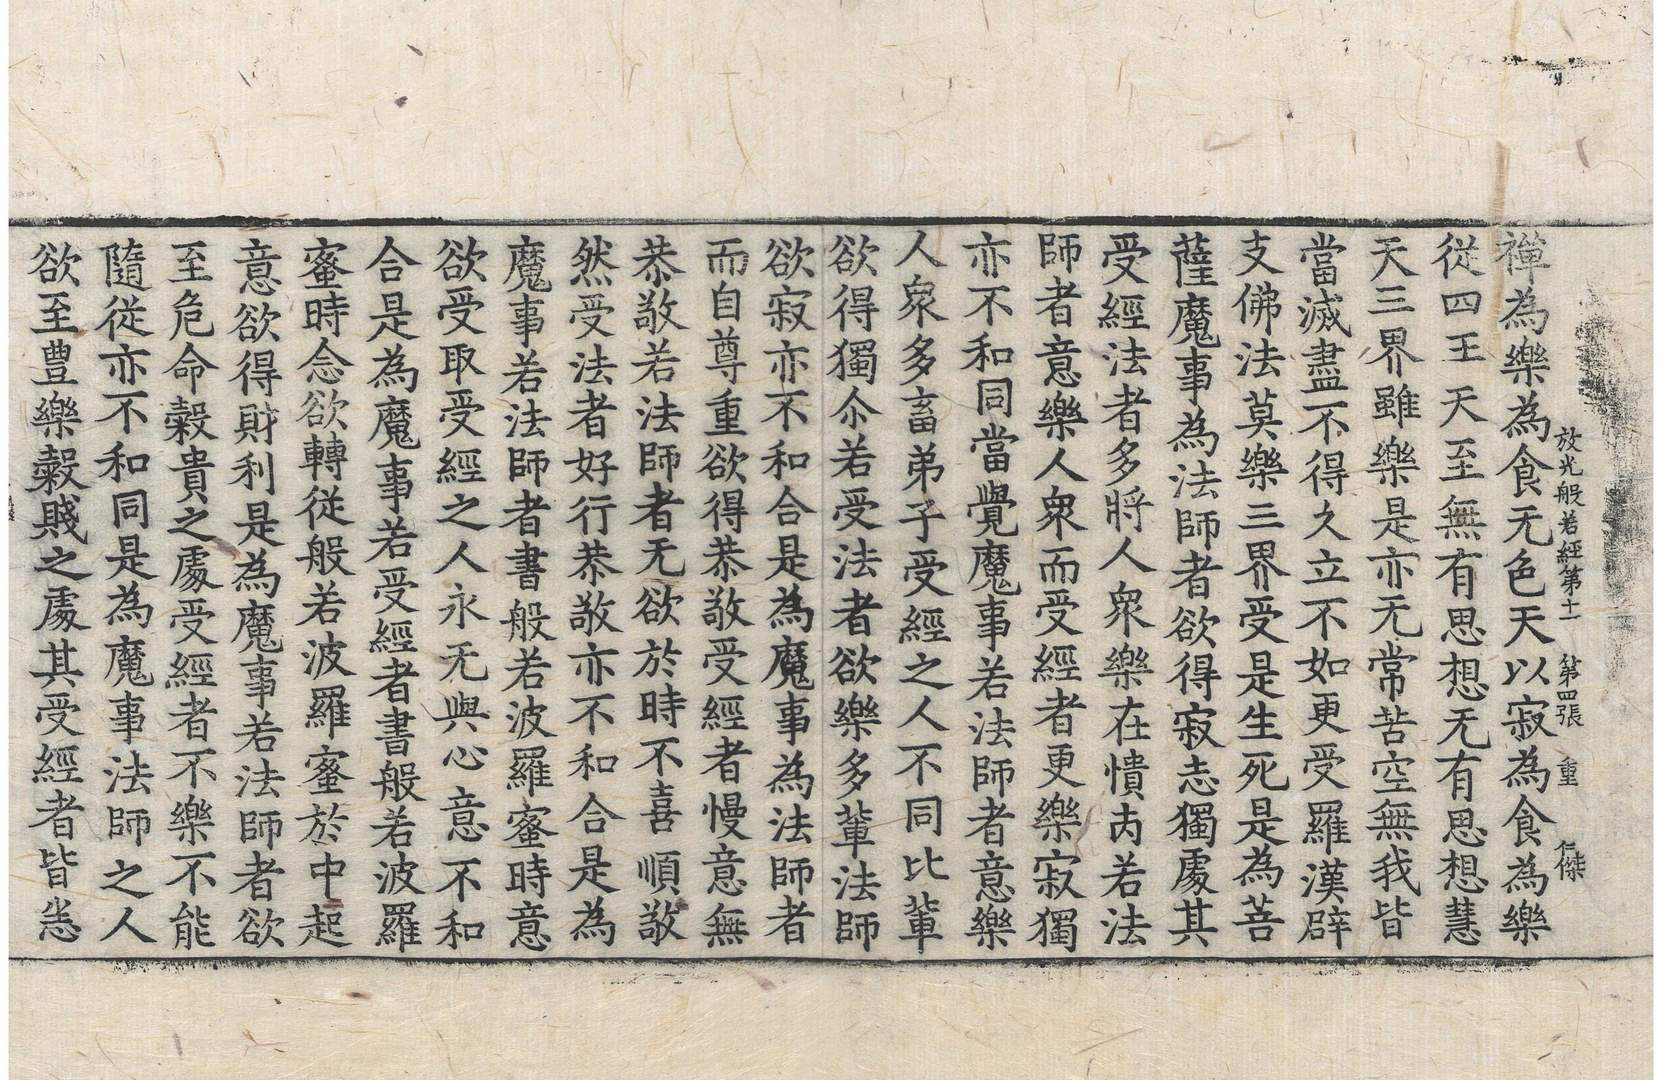 放光般若經第十一 第四張 重 仁傑
禪為樂為食无色天以寂為食為樂
従四王天至無有思想无有思想慧
天三界雖樂是亦无常苦空無我皆
當滅盡不得久立不如更受羅漢辟
支佛法莫樂三界受是生死是為菩
薩魔事為法師者欲得寂志獨處其
受經法者多將人衆樂在憒內若法
師者意樂人衆而受經者更樂寂獨
亦不和同當覺魔事若法師者意樂
人衆多畜弟子受經之人不同比輩
欲得獨尒若受法者欲樂多輩法師
欲寂亦不和合是為魔事為法師者
而自尊重欲得恭敬受經者慢意無
恭敬若法師者无欲於時不喜順敬
然受法者好行恭敬亦不和合是為
魔事若法師者書般若波羅蜜時意
欲受取受經之人永无與心意不和
合是為魔事若受經者書般若波羅
蜜時念欲轉従般若波羅蜜於中起
意欲得財利是為魔事若法師者欲
至危命糓貴之處受經者不樂不能
隨従亦不和同是為魔事法師之人
欲至豊樂糓賤之處其受經者皆恙